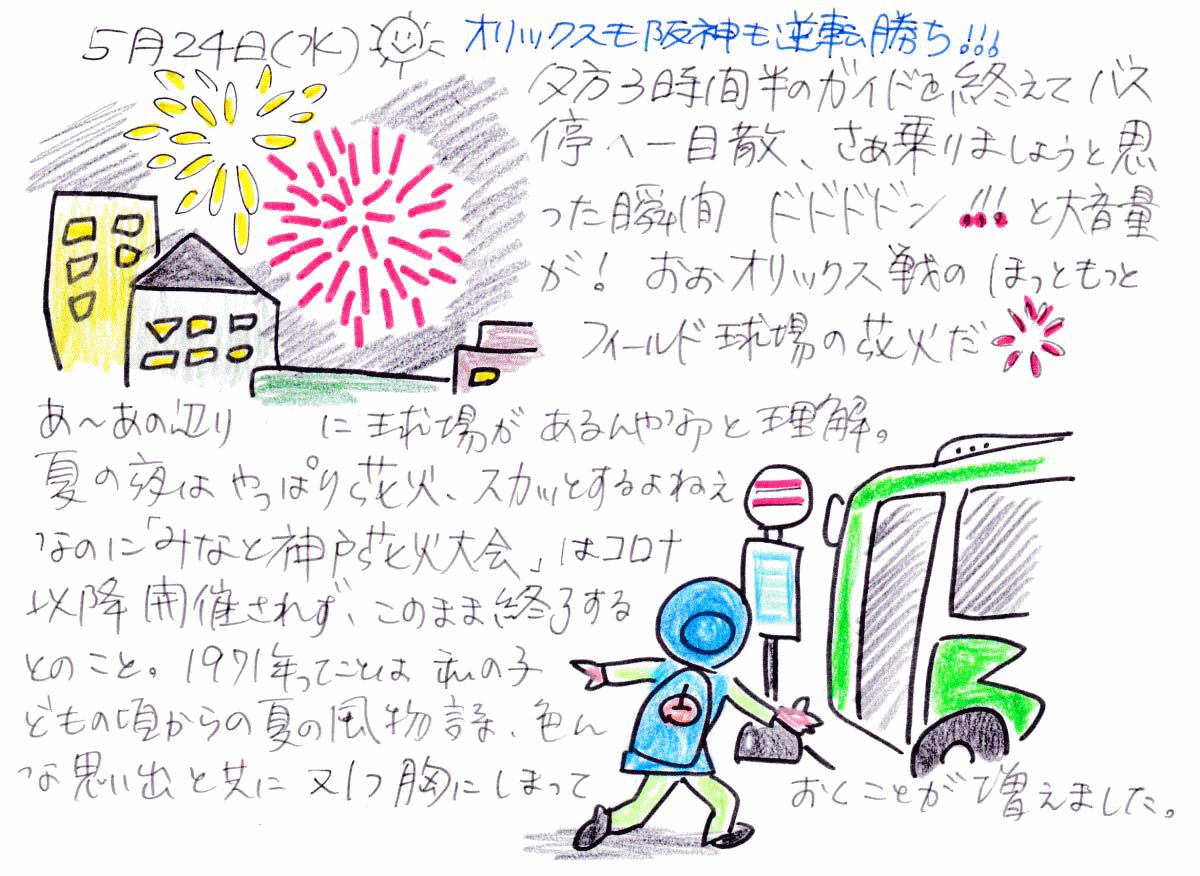 5月24日(水)
オリックスも阪神も逆転勝ち!!!
夕方3時間半のガイドを終えてバス
停へ一目散、さあ乗りましょうと思
った瞬間 ドドドドン!!!と大音量
が! おぉオリックス戦のほっともっと
フィールド球場の花火だ
あ〜あの辺り に球場があるんやｦｦと理解。
夏の夜はやっぱり花火、スカッとするよねぇ
なのに「みなと神戸花火大会」はコロナ
以降開催されず、このまま終了する
とのこと。1971年ってことは私の子
どもの頃からの夏の風物詩、色ん
な思い出と共に又1つ胸にしまって
おくことが増えました。